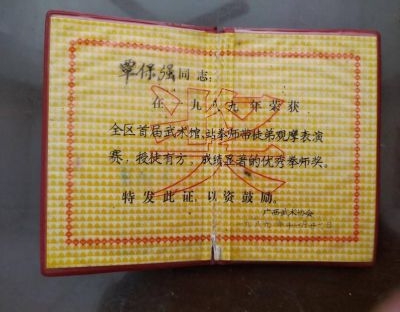 覃保强同志：
在一九八九年荣获
全区首届武术馆、站拳师带徒弟观摩表演
赛，授徒有方，成绩显著的优秀拳师奖。
特发此证，以资鼓励。
奖
广西武术协会
一九八九年十一月廿一日